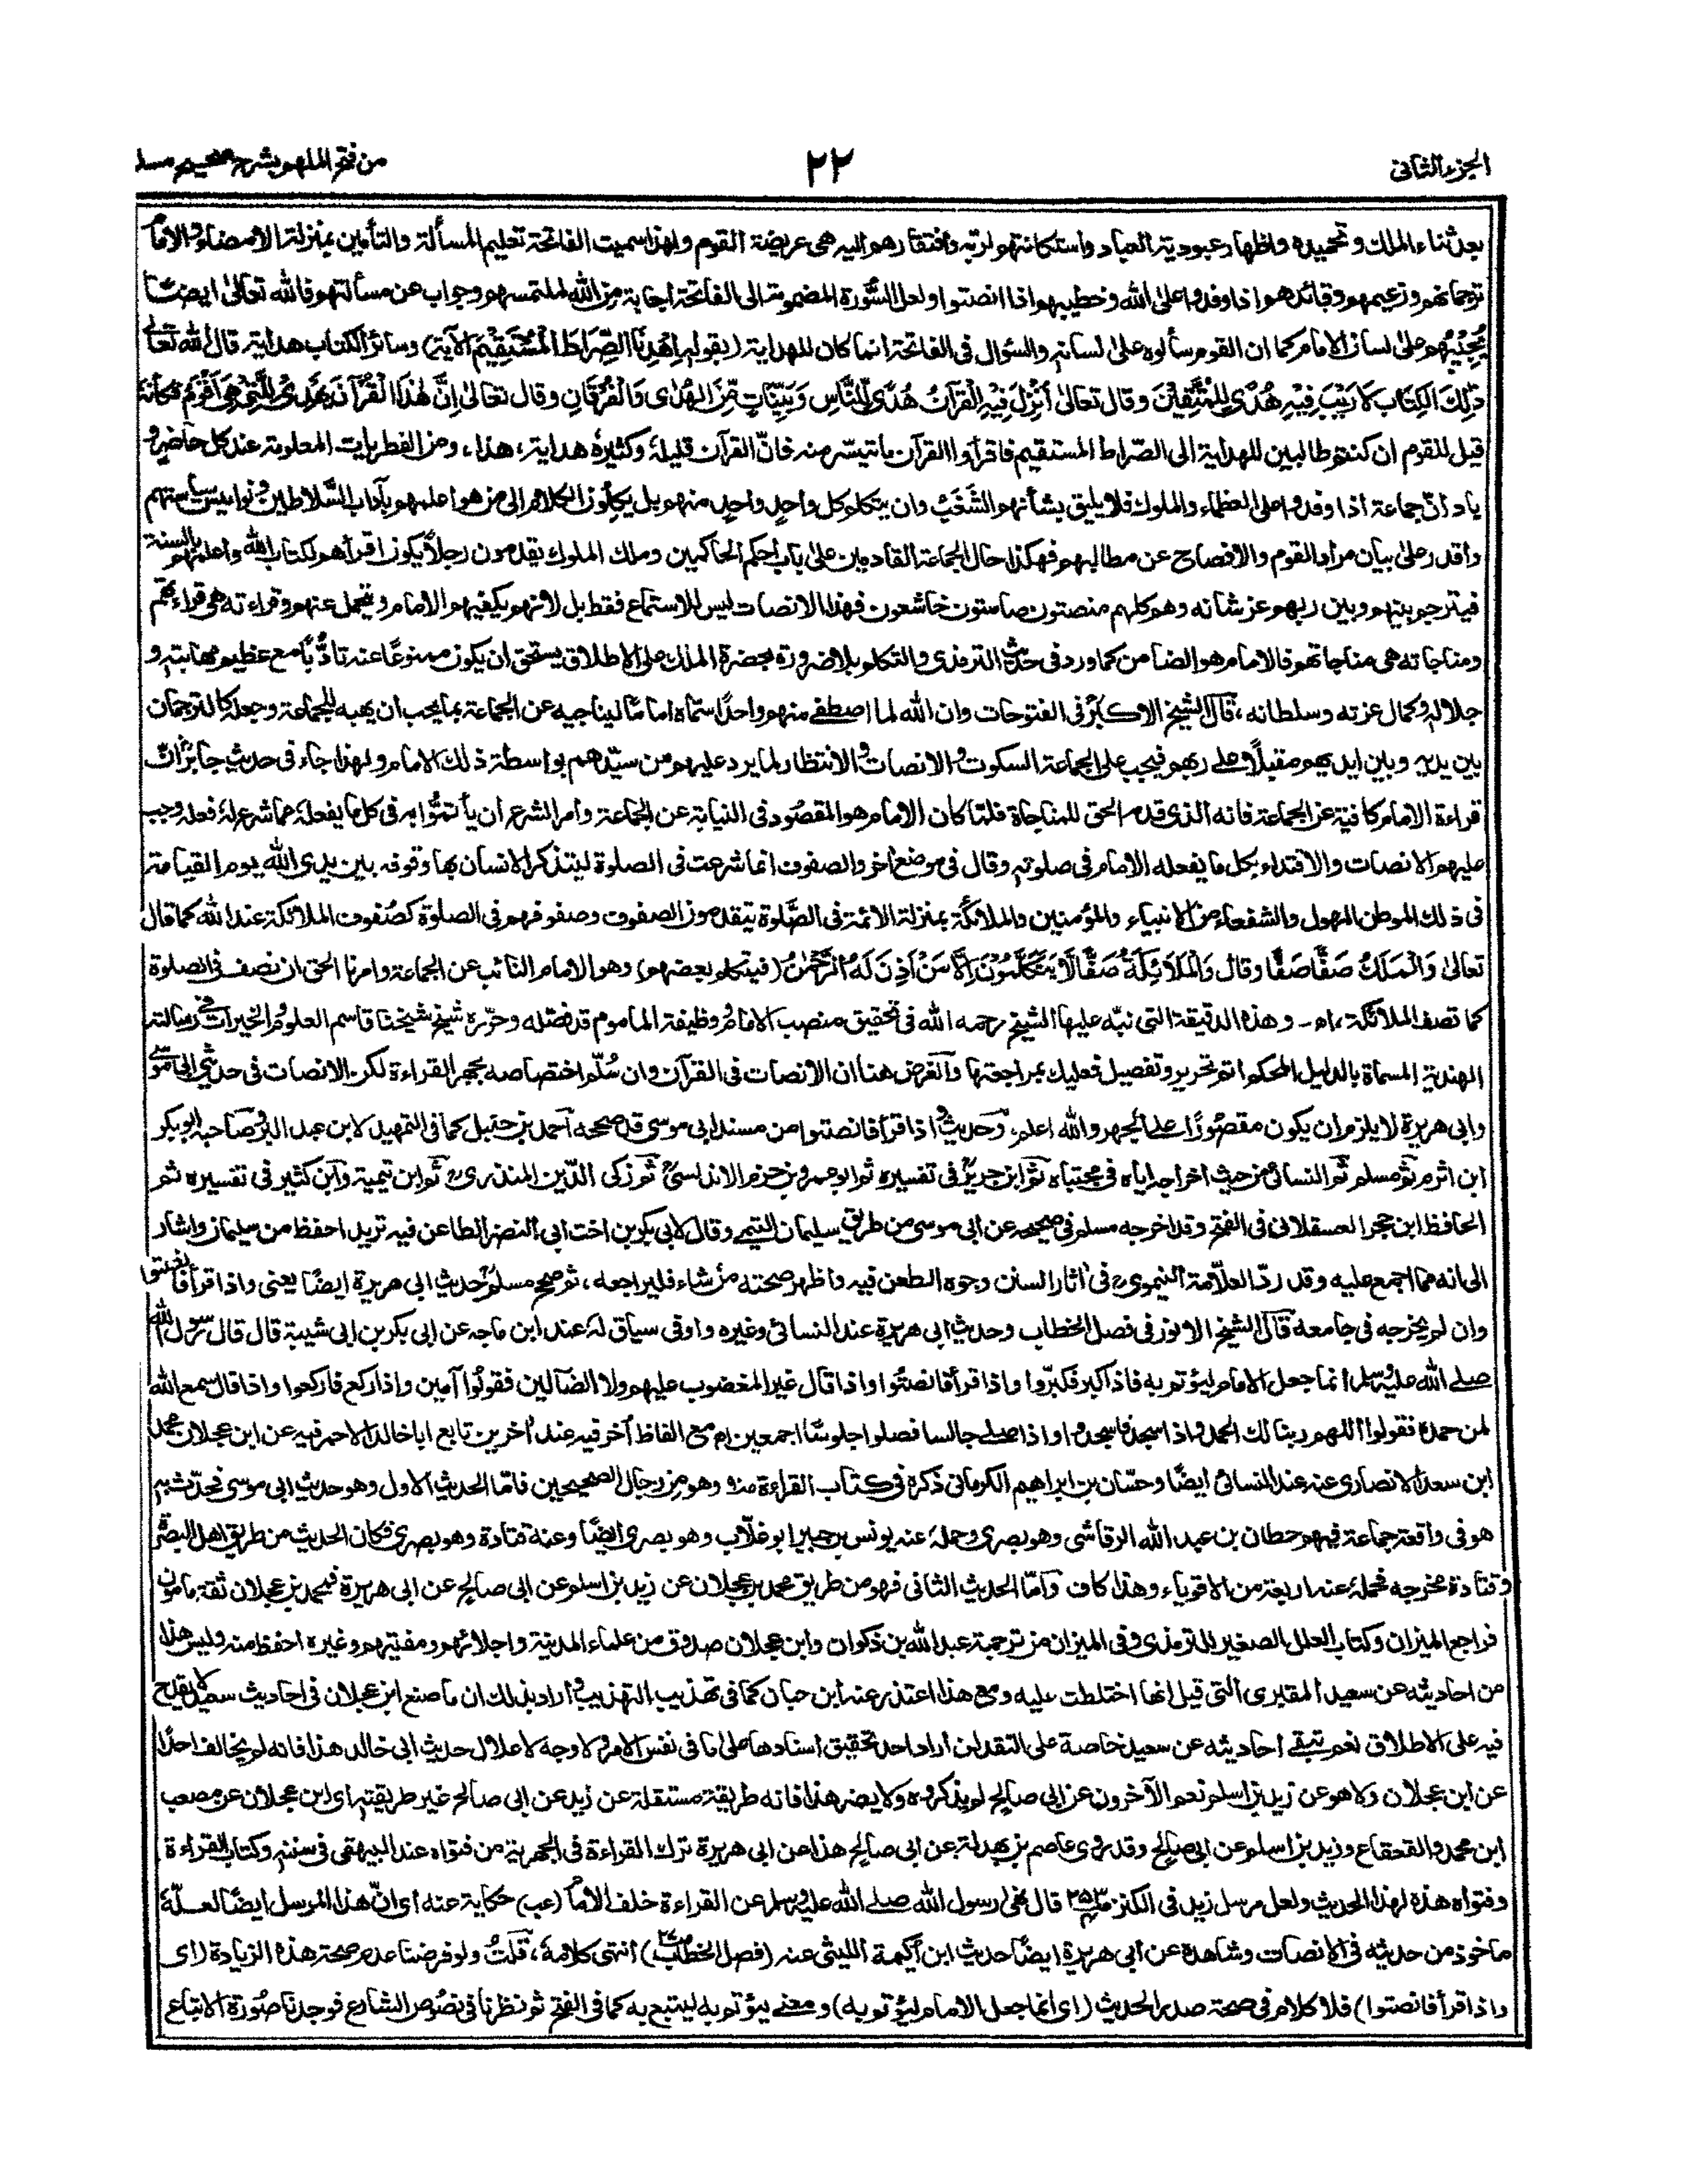 الجزء الثاني
٢٢
من فتح الملهم بشرح صحيح مسلم
بعد ثناء الملك وتحميده واظهار عبودية العباد واستكانتهم لربه وافتقارهم اليه هي عريضة القوم ولهذا سميت الفاتحة تعليم المسألة والتأمين بمنزلة الامضاء والامام
ترجمانهم وزعيمهم وقائدهم اذا وفدوا على الله وخطيبهم اذا انصتوا ولعل السُّورة المضمومة الى الفاتحة اجابة من الله لملتمسهم وجواب عن مسألتهم فالله تعالىٰ ايضًا
يُجِيْبُهم علىٰ لسان الامام كما ان القوم سألوه علىٰ لسانه والسؤال في الفاتحة انما كان للهداية (بقوله اِهْدِنَا الصِّرَاطَ الْمُسْتَقِيْمَ الآية) وسائر الكتاب هداية قال الله تعالىٰ
ذٰلِكَ الْكِتَابُ لَا رَيْبَ فِيْهِ هُدًى لِّلْمُتَّقِيْنَ وقال تعالىٰ اُنْزِلَ فِيْهِ الْقُرْآنُ هُدًى لِّلنَّاسِ وَبَيِّنَاتٍ مِّنَ الْهُدٰى وَالْفُرْقَانِ وقال تعالىٰ اِنَّ هٰذَا الْقُرْآنَ يَهْدِىْ لِلَّتِىْ هِىَ اَقْوَمُ فكأنه
قيل للقوم ان كنتم طالبين للهداية الى الصّراط المستقيم فاقرأوا القرآن ما تيسّر منه فانّ القرآن قليلهٗ وكثيرهٗ هداية، هذا، ومن الفطريات المعلومة عند كل حاضر و
باد انّ جماعة اذا وفدوا على العظماء والملوك فلا يليق بشأنهم الشَّغَبُ وان يتكلم كل واحدٍ واحدٍ منهم بل يكلون الكلام الى من هو اعلمهم بآداب السَّلاطين ونواميس سياستهم
واقدر علىٰ بيان مراد القوم والافصاح عن مطالبهم فهكذا حال الجماعة القادمين على باب احكم الحاكمين وملك الملوك يقدمون رجلاً يكون اقرأهم لكتاب الله واعلمهم بالسنة
فيترجم بينهم وبين ربهم عز شانه وهم كلهم منصتون صامتون خاشعون فهذا الانصات ليس للاستماع فقط بل لانهم يكفيهم الامام ويتحمل عنهم وقراءته هي قراءتهم
ومناجاته هي مناجاتهم فالامام هو الضامن كما ورد في حديث الترمذي والتكلم بلا ضرورة بحضرة الملك على الاطلاق يستحق ان يكون ممنوعًا عنه تأدُّبًا مع عظيم مهابته و
جلاله وكمال عزته وسلطانه، قال الشيخ الاكبر في الفتوحات وان الله لما اصطفى منهم واحدًا سماه امامًا ليناجيه عن الجماعة بما يجب ان يهبه للجماعة وجعله كالترجمان
بين يديه وبين ايديهم مقبلًا على ربهم فيجب على الجماعة السكوت والانصات والانتظار لما يرد عليهم من سيّدهم بواسطة ذلك الامام ولهذا جاء في حديث جابر ان
قراءة الامام كافية عن الجماعة فانه الذي قدم الحق للمناجاة فلمّا كان الامام هو المقصود في النيابة عن الجماعة وامر الشرع ان يأتمّوا به في كل ما يفعلهٗ مما شرع لهٗ فعله وجب
عليهم الانصات والاقتداء بكل ما يفعله الامام في صلوته وقال في موضع اٰخر والصفوف انما شرعت في الصلوة ليتذكر الانسان بها وقوفه بين يدي الله يوم القيامة
في ذلك الموطن المهول والشفعاء من الانبياء والمؤمنين والملائكة بمنزلة الائمة في الصّلوة يتقدمون الصفوف وصفوفهم في الصلوة كصُفوف الملائكة عند الله كما قال
تعالىٰ وَالْمَلَكُ صَفًّا صَفًّا وقال وَالْمَلَائِكَةُ صَفًّا لَّا يَتَكَلَّمُوْنَ اِلَّا مَنْ اَذِنَ لَهُ الرَّحْمٰنُ (فيتكلم بعضهم) وهو الامام النائب عن الجماعة وامرنا الحق ان نصف في الصلوة
كما تصف الملائكة، اھ - وهذه الدقيقة التي نبّه عليها الشيخ رحمه الله في تحقيق منصب الامام ووظيفة الماموم قد فصّله وحرّره شيخ شيخنا قاسم العلوم والخيرات في رسالته
الهندية المسماة بالدليل المحكم اتم تحرير وتفصيل فعليك بمراجعتها والغرض هنا ان الانصات في القرآن وان سُلّم اختصاصه بجهر القراءة لكن الانصات في حديثي ابي موسى
وابي هريرة لا يلزم ان يكون مقصورًا على الجهر والله اعلم، وحديث و اذا قرأ فانصتوا من مسند ابي موسى قد صححه احمد بن حنبل كما في التمهيد لابن عبد البر وصاحبه ابو بكر
ابن اثرم ثم مسلم ثم النسائي من حيث اخراجه اياه في مجتباه ثم ابن جرير في تفسيره ثم ابو عمر وبن حزم الاندلسي ثم زكي الدّين المنذري ثم ابن تيمية وابن كثير في تفسيره ثم
الحافظ ابن حجر العسقلاني في الفتح وقد اخرجه مسلم في صحيحه عن ابي موسى من طريق سليمان التيمي وقال لابي بكر بن اخت ابي النضر الطاعن فيه تريد احفظ من سليمان واشار
الى انه مما اجمع عليه وقد ردّ العلّامة النيموي في اٰثار السنن وجوه الطعن فيه واظهر صحته من شاء فليراجعه، ثم صحح مسلم حديث ابي هريرة ايضًا يعني واذا قرأ فانصتوا
وان لم يخرجه في جامعه قال الشيخ الانور في فصل الخطاب وحديث ابي هريرة عند النسائي وغيره واوفى سياق لهٗ عند ابن ماجه عن ابي بكر بن ابي شيبة قال قال رسول الله
صلى الله عليه وسلم انما جعل الامام ليؤتم به فاذا كبر فكبّروا واذا قرأ فانصتُوا واذا قال غير المغضوب عليهم ولا الضآلين فقولُوا آمين واذا ركع فاركعوا واذا قال سمع الله
لمن حمده فقولوا اللهم ربنا لك الحمد واذا سجد فاسجدوا واذا صلى جالسا فصلوا جلوسًا اجمعين اھ مع الفاظ اُخر فيه عند اٰخرين تابع ابا خالد الاحمر فيه عن ابن عجلان محمد
ابن سعد الانصاري عند عند النسائي ايضًا وحسّان بن ابراهيم الكرماني ذكره في كتاب القراءة وهو من رجال الصحيحين فامّا الحديث الاول وهو حديث ابي موسى تحدّث به
هو في واقعة جماعة فيهم حطان بن عبد الله الرقاشي وهو بصري وحمله عنه يونس بن جبير ابو غلّاب وهو بصري ايضًا وعنه قتادة وهو بصري فكان الحديث من طريق اهل البصرة
وقتادة مخرجه فحمله عنه اربعة من الاقوياء وهذا كاف وامّا الحديث الثاني فهو من طريق محمد بن عجلان عن زيد بن اسلم عن ابي صالح عن ابي هريرة فمحمد بن عجلان ثقة مامون
فراجع الميزان وكتاب العلل الصغير للترمذي وفي الميزان من ترجمة عبد الله بن ذكوان وابن عجلان صدوق من علماء المدينة واجلائهم ومفتيهم وغيره احفظ منه وليس هذا
من احاديثه عن سعيد المقبري التي قيل انها اختلطت عليه ومع هذا اعتذر عنه ابن حبان كما في تهذيب التهذيب و اراد بذلك ان ما صنع ابن عجلان في احاديث سعيد لا يقدح
فيه على الاطلاق نعم تبقى احاديثه عن سعيد خاصة على النقد لمن اراد احد تحقيق اسنادها على ما في نفس الامر ولا وجه لاعلال حديث ابي خالد هذا فانه لم يخالف احدًا
عن ابن عجلان ولا هو عن زيد بن اسلم نعم الآخرون عن ابي صالح لم يذكروه ولا يضر هذا فانه طريقة مستقلة عن زيد عن ابي صالح غير طريقته اي ابن عجلان عن مصعب
ابن محمد والقعقاع وزيد بن اسلم عن ابي صالح وقد روى عاصم بن بهدلة عن ابي صالح هذا عن ابي هريرة ترك القراءة في الجهرية من فتواه عند البيهقي في سننه وكتاب القراءة
وفتواه هذه لهذا الحديث ولعل مرسل زيد في الكنز قال نهى رسول الله صلى الله عليه وسلم عن القراءة خلف الامام (عب) حكاية عنه اي انّ هذا المرسل ايضًا لعلّه
ماخوذ من حديثه في الانصات وشاهدة عن ابي هريرة ايضًا حديث ابن اكيمة الليثي عنه (فصل الخطاب) انتهى كلامهٗ، قلتُ ولو فرضنا عدم صحة هذه الزيادة (اي
واذا قرأ فانصتوا) فلا كلام في صحة صدر الحديث (اي انما جعل الامام ليؤتم به) ومعنى يؤتم به ليتبع به كما في الفتح ثم نظرنا في نصُوص الشارع فوجدنا صُورة الاتباع